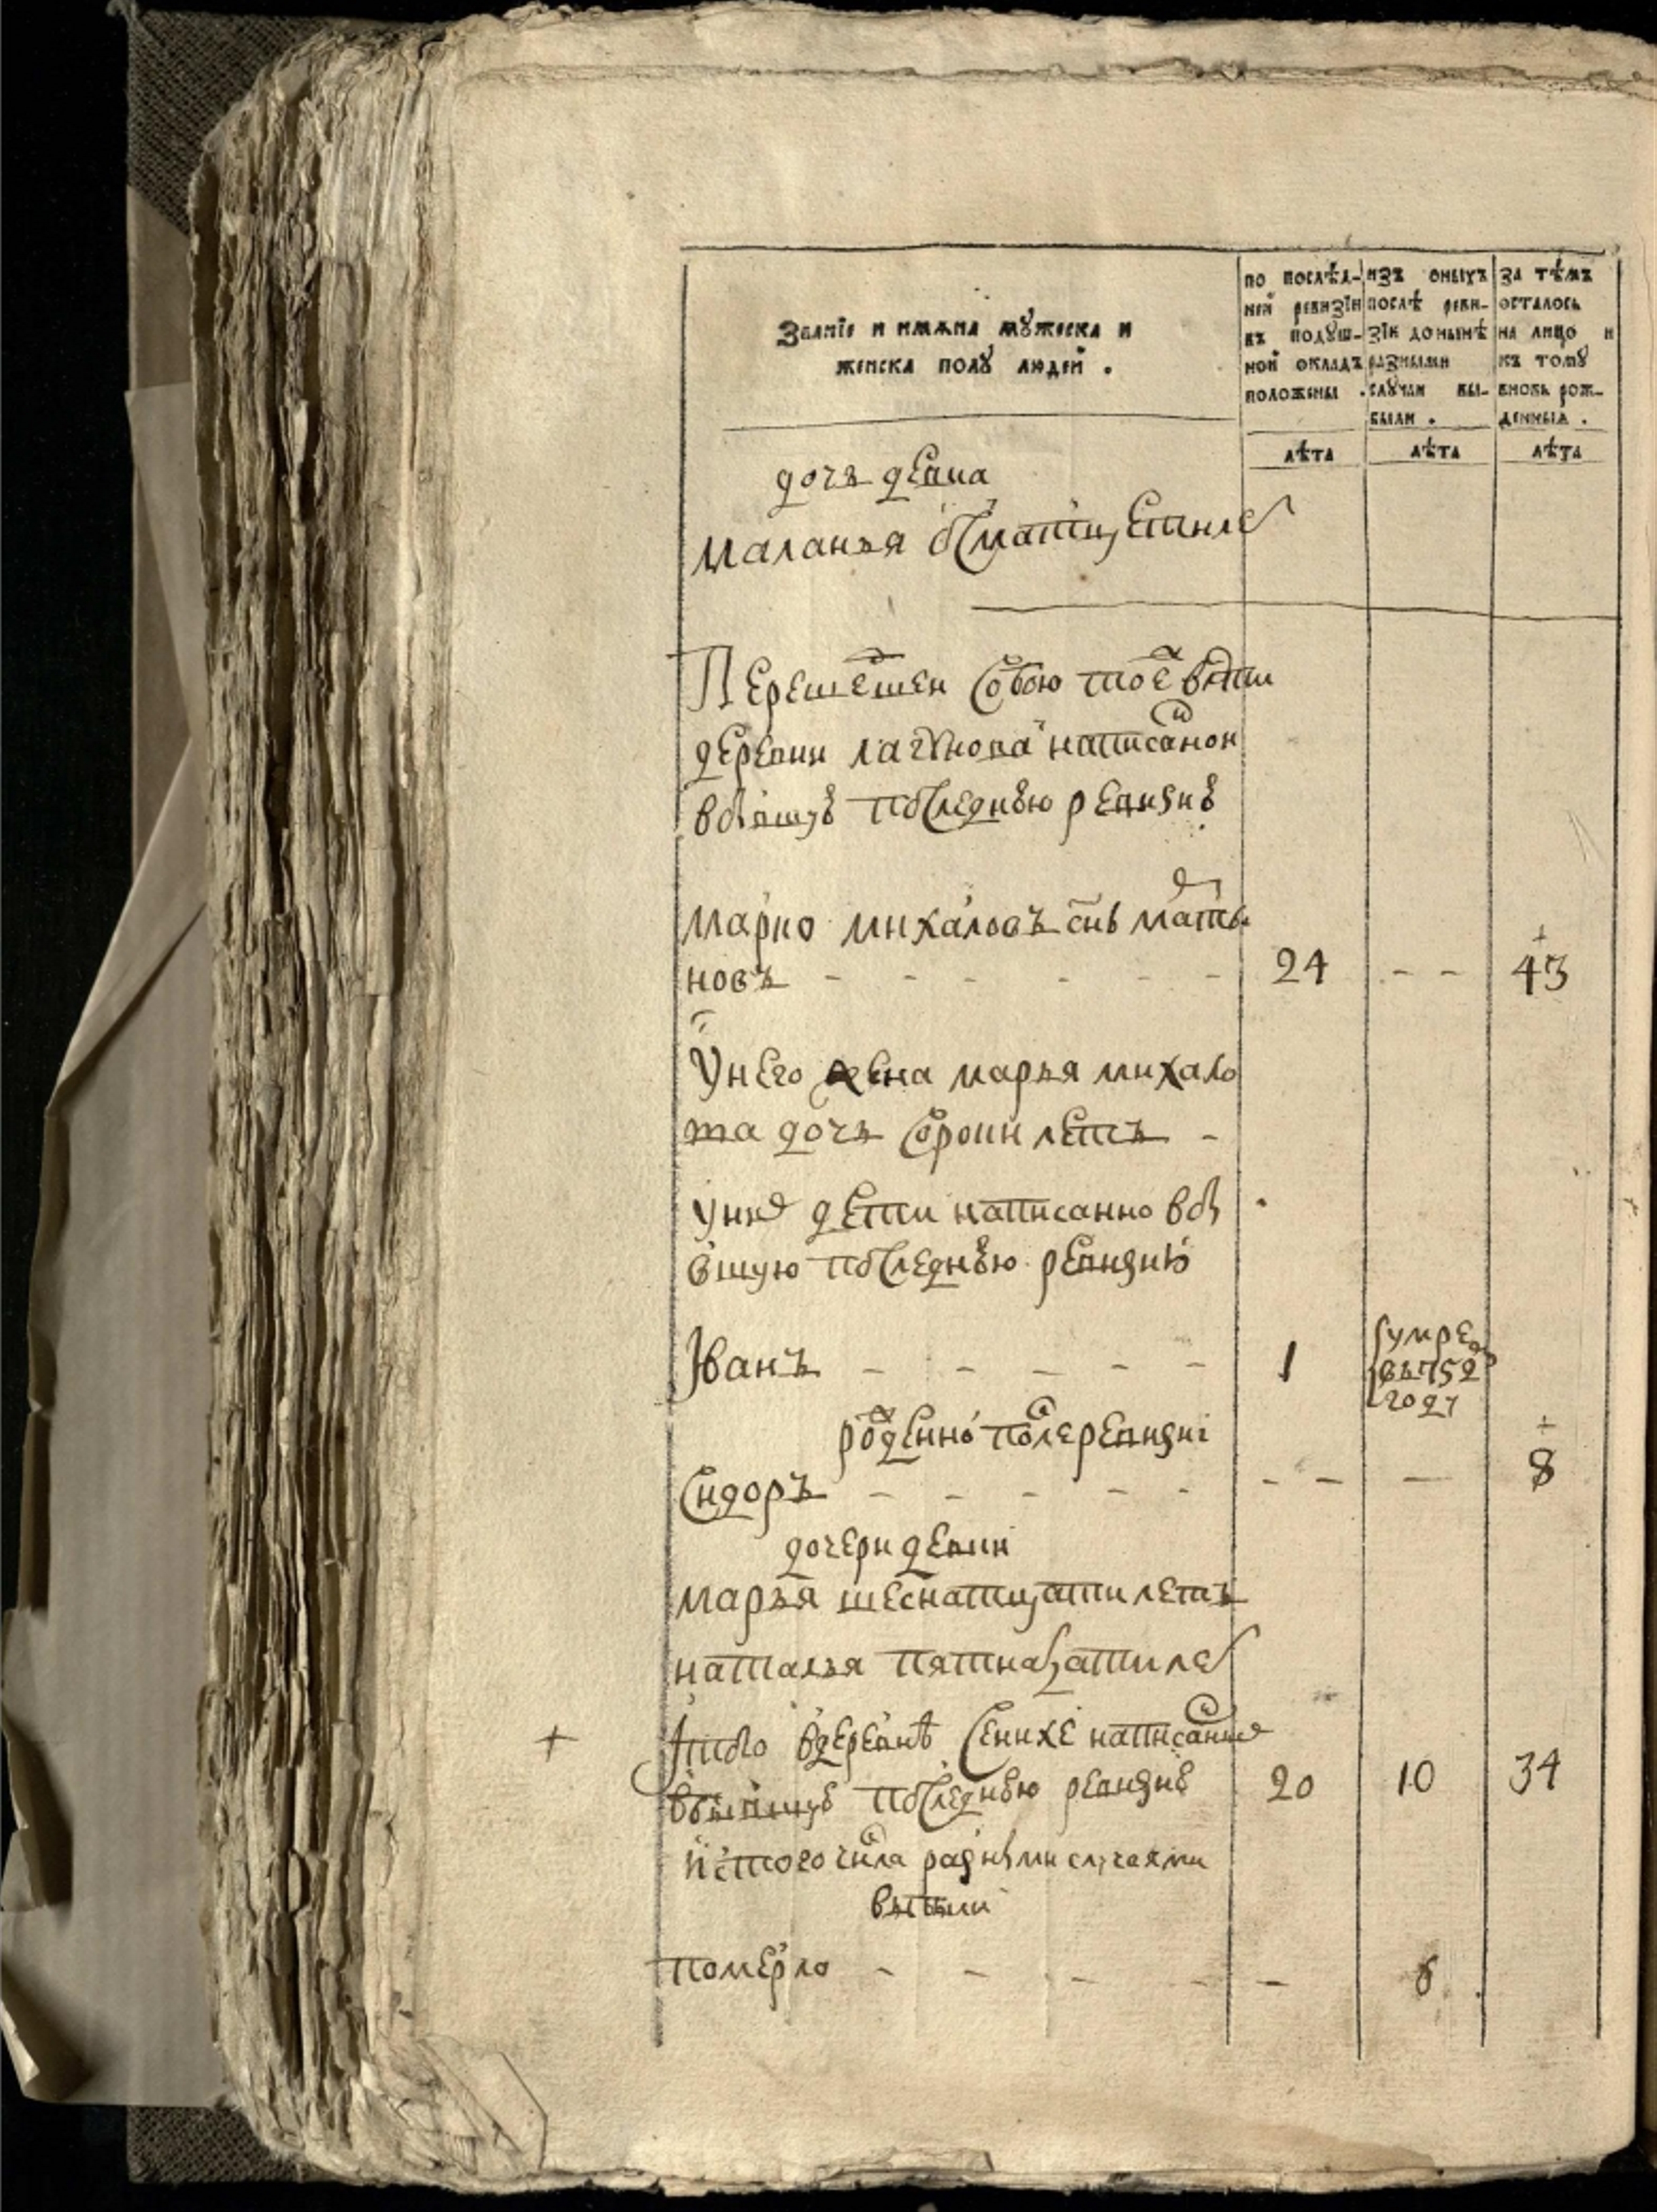 Званїе и имѧна мꙋжеска и
женска полꙋ людей .
по послѣд-
ней ревизїи
въ подꙋш-
ной окладъ
положены .
изъ оныхъ
послѣ реви-
зїи донынѣ
разными
слꙋчаи вы-
были .
за тѣмъ
осталось
на лицо и
къ томꙋ
вновь рож-
денныѧ .
лѣта
лѣта
лѣта
дочь девка
маланья осматцет лет
Перешетшей собою тоежѣ
деревни написаной
в бывшую последнюю ревизию
марко михаловъ снъ
новъ - - - - - - 24 - - 43
У него жена марья михало
ва дочь сороки летъ -
у них дети написанно в бы
вшую последнюю ревизию
Іванъ - - - - - 1 умре
въ 752
году
рожденной после ревизиі
Сидоръ - - - - - - - — 8
дочери девки
марья шеснатцати летъ
наталья пятнацати лет
Ітого в деревнѣ Сенихе написанных
в бывшую последнюю ревизию 20 10 34
ис того числа разными случаями
выбыли
померло - - - - - 6